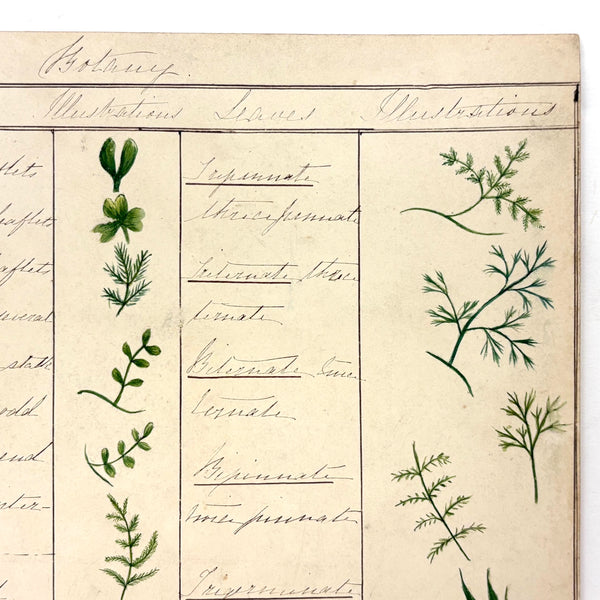 Botany.
Illustrations Leaves Illustrations
lets
leaflets
leaflets
several
stalk
odd
end
inter-
Tripinnate
thrice pinnate
Triternate thrice
ternate
Biternate twice
ternate
Bipinnate
twice pinnate